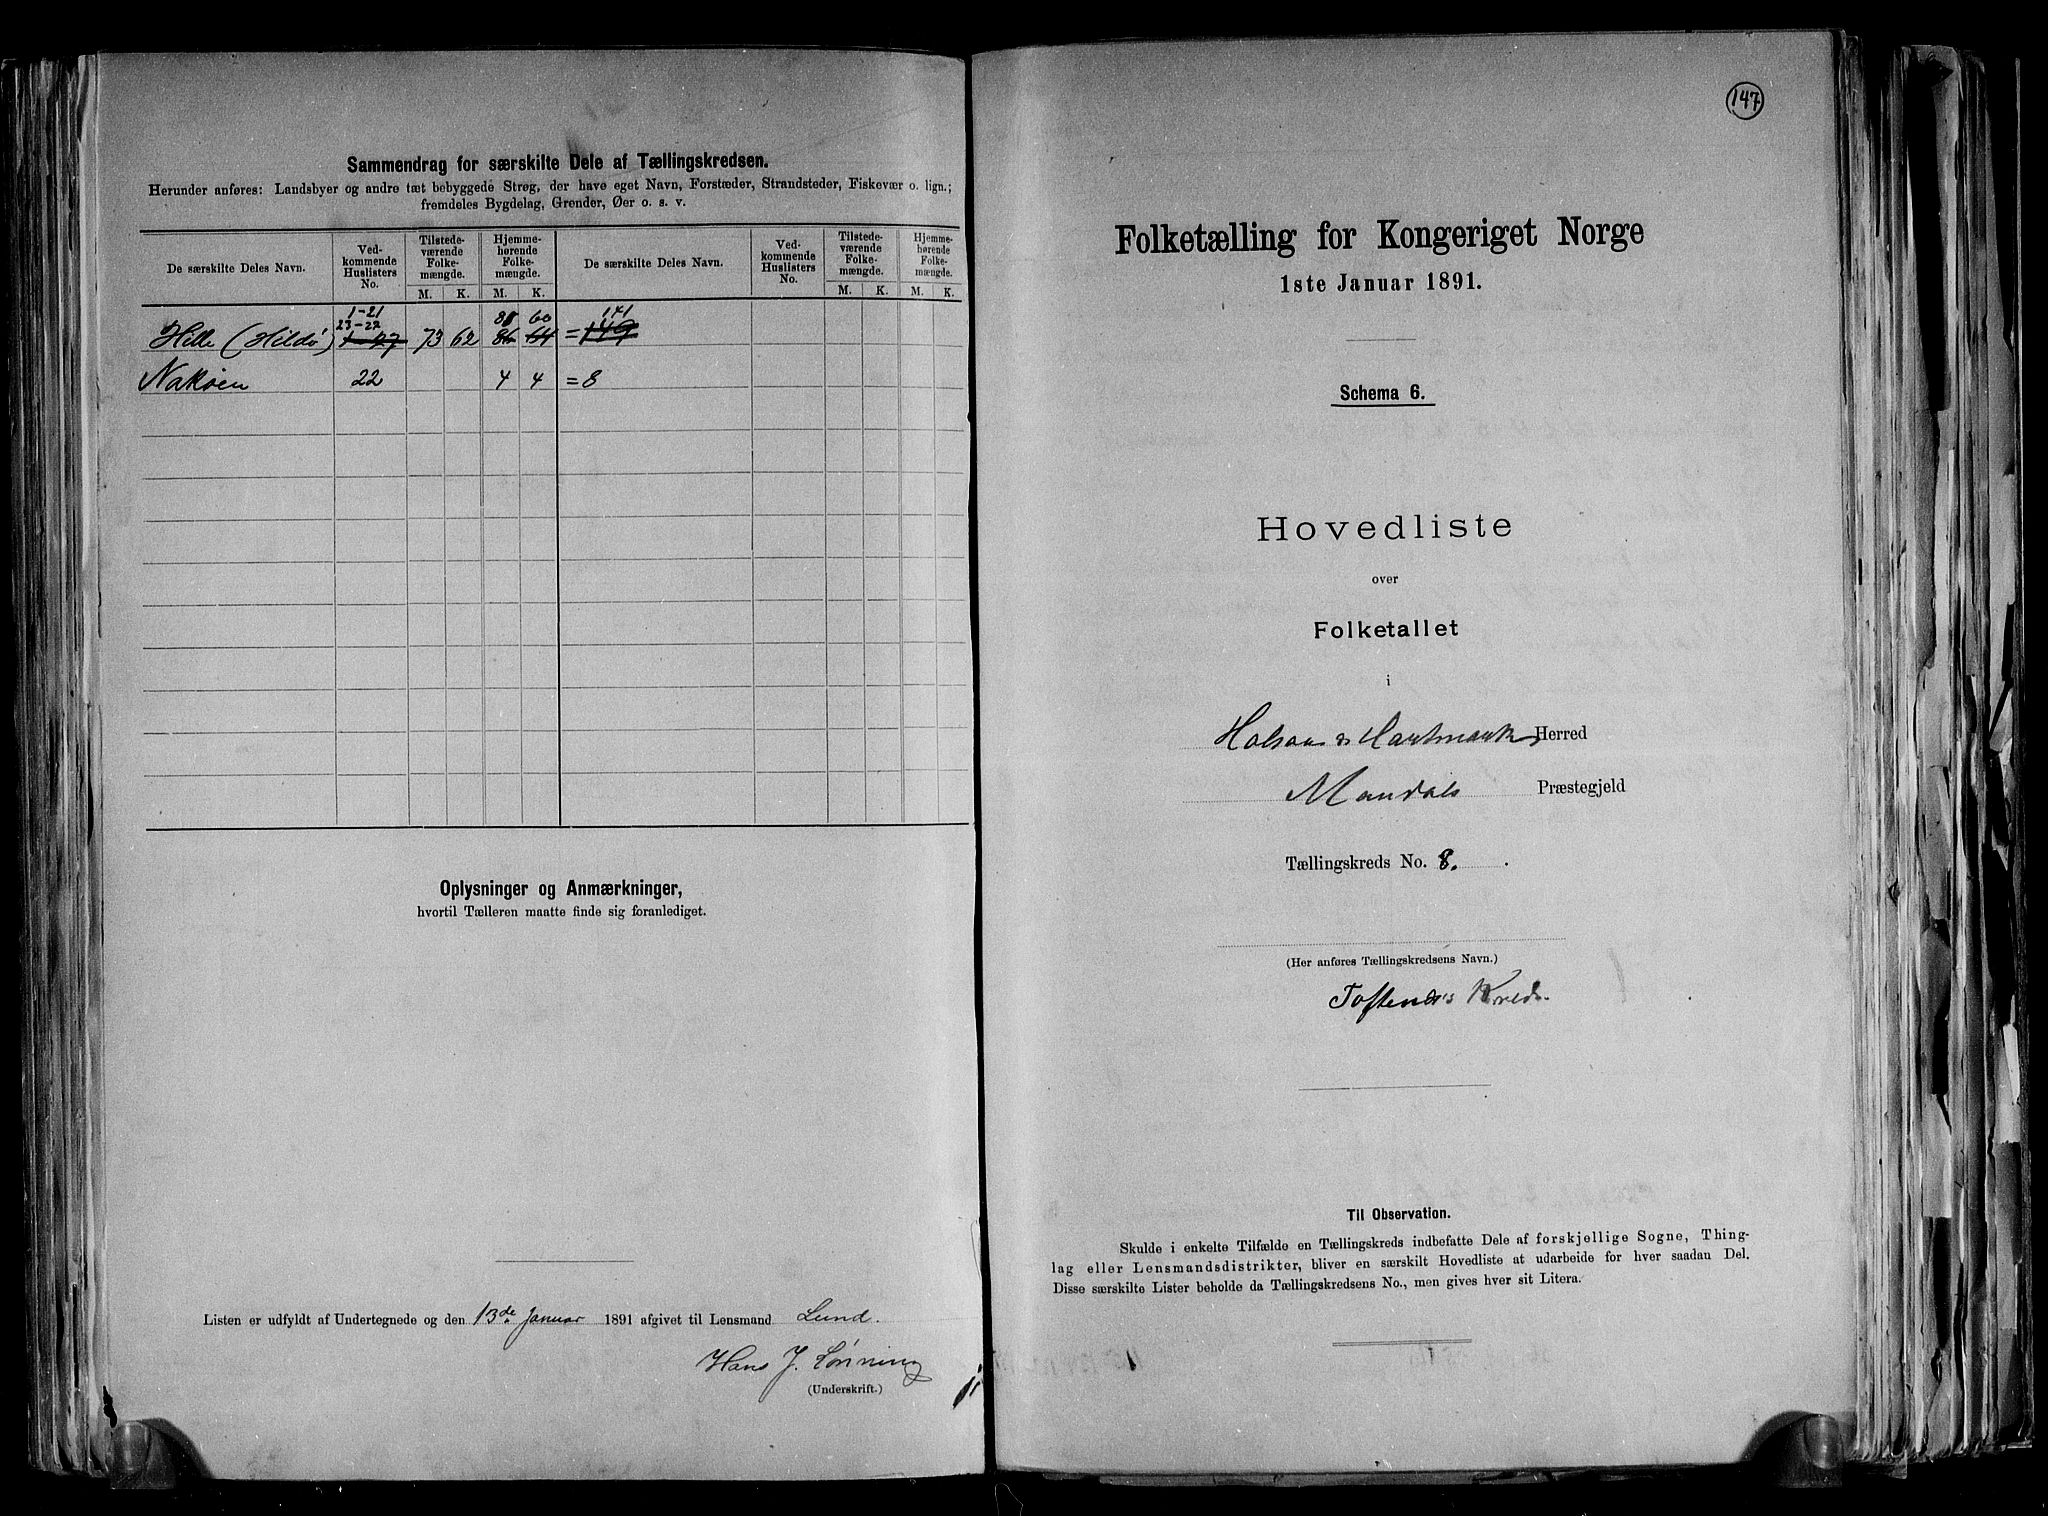 Sammendrag for særskilte Dele af Tællingskredsen.
Herunder anføres: Landsbyer og andre tæt bebyggede Strøg, der have eget Navn, Forstæder, Strandsteder, Fiskevær o. lign.;
fremdeles Bygdelag, Grender, Øer o. s. v.
De særskilte Deles Navn. Ved-kommende Huslisters No. Tilstede-værende Folke-mængde. Hjemme-hørende Folke-mængde. De særskilte Deles Navn. Ved-kommende Huslisters No. Tilstede-værende Folke-mængde. Hjemme-hørende Folke-mængde.
M. K. M. K. M. K. M. K.
1-21 60 141
23-27
Hille (Hildø) 1-27 73 62 86 64 = 149
Nakøen 22 4 4 = 8
Oplysninger og Anmærkninger,
hvortil Tælleren maatte finde sig foranlediget.
Listen er udfyldt af Undertegnede og den 13de Januar 1891 afgivet til Lensmand Lund.
Hans J. Lønning
(Underskrift.)
147
Folketælling for Kongeriget Norge
1ste Januar 1891.
Schema 6.
Hovedliste
over
Folketallet
i
Halsaa & Hartmark Herred
Mandals Præstegjeld
Tællingskreds No. 8.
(Her anføres Tællingskredsens Navn.)
Toftenes Kreds.
Til Observation.
Skulde i enkelte Tilfælde en Tællingskreds indbefatte Dele af forskjellige Sogne, Thing-
lag eller Lensmandsdistrikter, bliver en særskilt Hovedliste at udarbeide for hver saadan Del.
Disse særskilte Lister beholde da Tællingskredsens No., men gives hver sit Litera.